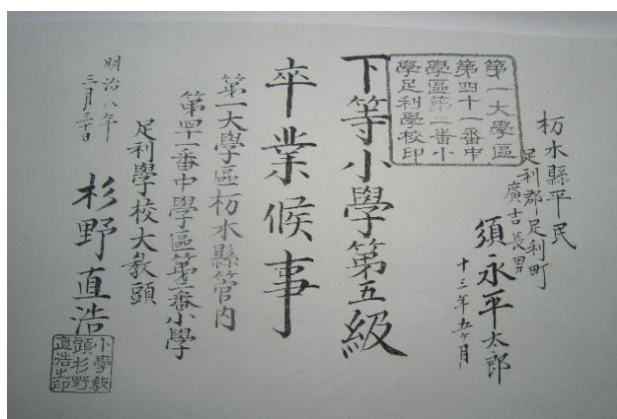 栃木縣平民
足利郡足利町
廣吉長男
須永平太郎
十三年五ヶ月
第一大學區
第四十一番中
學區第二番小
學足利學校印
下等小學第五級
卒業候事
第一大學區栃木縣管内
第四十一番中學區第二番小學
足利學校大教頭
杉野直浩
小學教
頭杉野
直浩之印
明治八年
三月三十日